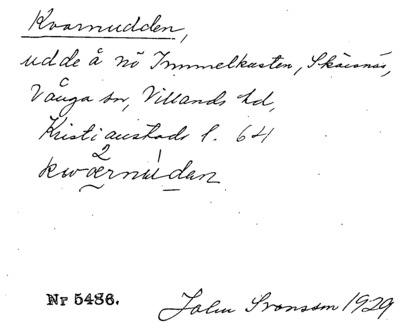 Kvarnudden,
udde å nö Immelkusten, Skärsnäs,
Vånga sn, Villands hd,
Kristianstads l. 64
kwærnúdan
Nr 5486. John Svensson 1929